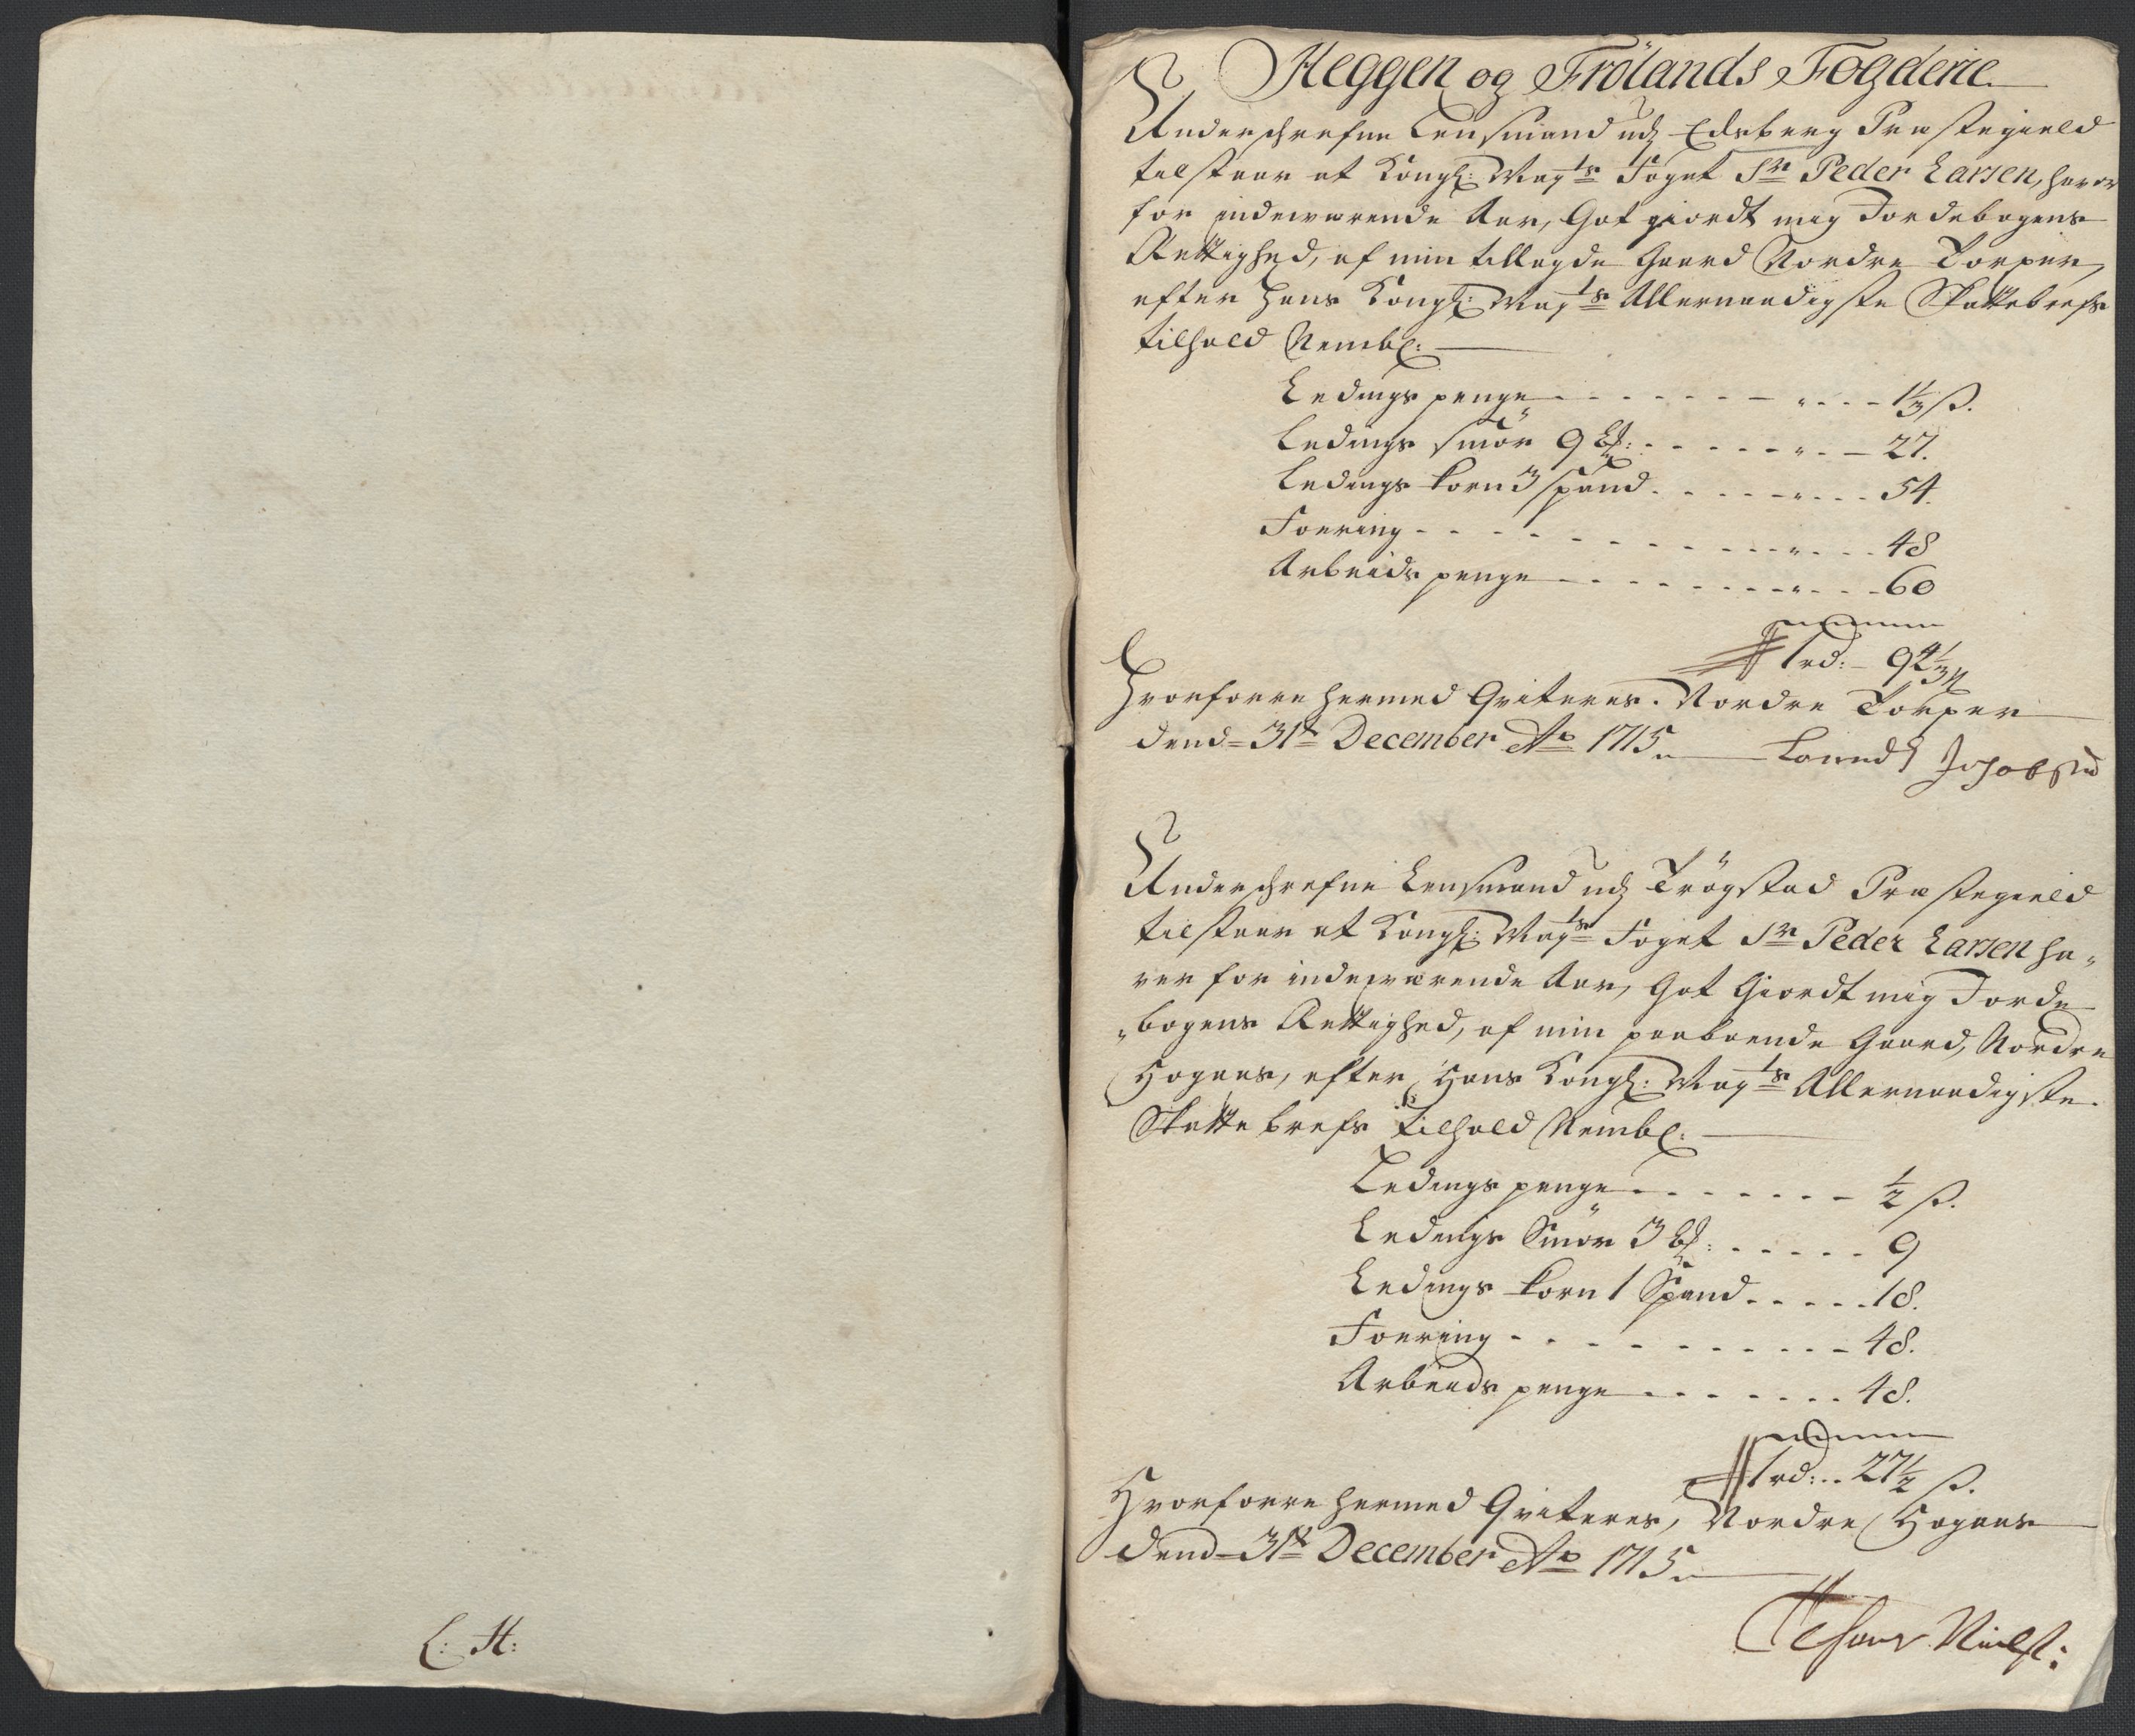 L: H:
Heggen og Frölands Fogderie
Underschrefne Lensmand udj Edsberg Præstegield
tilstaar at Kongl: Mayts Foget Sr Peder Larsen, haver
for indewærende Aar, Got giordt mig Jordebogens
Rettighed, af min tillagde Gaard Nordre Torper,
efter Hans Kongl: Mayts Allernaadigste Skattebrefs
tilhold Nembl:
Ledings penge - - - - - - - " - - - - 1⅓ ß.
Ledings smör 9 - - - - - - " - - 27.
Ledings korn 3 spand - - - - - " - - - 54.
Foering - - - - - - - - - - " - - - 48
Arbeids penge - - - - - - - - " - - - 60
1 rd: - 94⅓ ß
Hvorforre hermed Qviteres. Nordre Torper
dend = 31te December Ao 1715
Jachobsen
Underschrefne Lensmand udj Trögstad Præstegield
tilstaar at Kongl: Mayts Foget Sr Peder Larsen ha-
ver for indewærende Aar, Got Giordt mig Jorde
"bogens Rettighed, af min paaboende Gaard, Nordre
Hogaas, efter Hans Kongl: Mayts Allernaadigste
Skatte brefs tilhold Nembl:
Ledings penge - - - - - - - ½ ß.
Ledings Smör 3 - - - - - 9
Ledings korn 1 Spand - - - - - 18.
Foering - - - - - - - - - - 48.
Arbeids penge - - - - - - - 48.
1 rd: - - 27½ ß.
Hvorforre hermed Qviteres, Nordre Hogaas
dend = 31te December Ao 1715
Nielss: